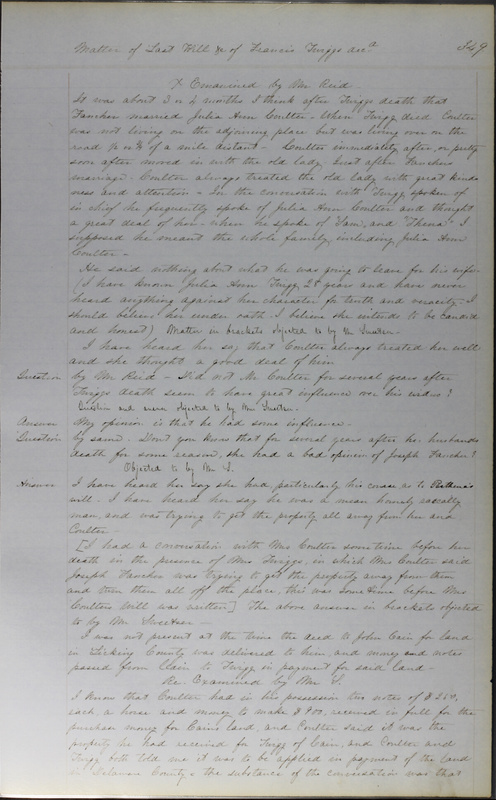 Matter of Last Will &c of Francis Twiggs decd 349
X Examined by Mr Reid
It was about 3 or 4 months I think after Twiggs death that
Fancher married Julia Ann Coulter - When Twigg died Coulter
was not living on the adjoining place but was living over on the
road ½ or ¾ of a mile distant - Coulter immediately after, or pretty
soon after moved in with the old lady. Just after Fanchers
marriage. Coulter always treated the old lady with great kind-
ness and attention - In the conversation with Twigg spoken of
in chief he frequently spoke of Julia Ann Coulter and thought
a great deal of her - when he spoke of Sam, and "Thena" I
supposed he meant the whole family, including Julia Ann
Coulter -
He said nothing about what he was going to leave for his wife
(I have known Julia Ann Twigg 25 years and have never
heard anything against her character for truth and veracity - I
should believe her under oath. I believe she intends to be candid
and honest) Matter in brackets objected to by Mr Sweetser -
I have heard her say that Coulter always treated her well
and she thought a good deal of him
Question by Mr Reid - Did not Mr Coulter for several years after
Twiggs death seem to have great influence over his widow?
Question and answer objected to by Mr Sweetser.
Answer My opinion is that he had some influence.
Question by same. Dont you know that for several years after her husbands
death for some reason, she had a bad opinion of Joseph Fancher?
Objected to by Mr S.
Answer I have heard her say she had, particularly his course as to
will. I have heard her say he was a mean homely rascally
man, and was trying to get the property all away from her and
Coulter
[I had a conversation with Mrs Coulter sometime before her
death in the presence of Mrs Twiggs, in which Mrs Coulter said
Joseph Fancher was trying to get the property away from them
and turn them all off the place, this was some time before Mrs
Coulters Will was written] The above answer in brackets objected
to by Mr Sweetser -
I was not present at the time the deed to John Cain for land
in Licking County was delivered to him, and money and notes
passed from Cain to Twigg in payment for said land -
Re. Examined by Mr S.
I know that Coulter had in his possession two notes of $250,
each, a horse and money to make $900, received in full for the
purchase money for Cains land, and Coulter said it was the
property he had received for Twigg of Cain, and Coulter and
Twigg both told me it was to be applied in payment of the land
in Delaware County, & the substance of the conversation was that